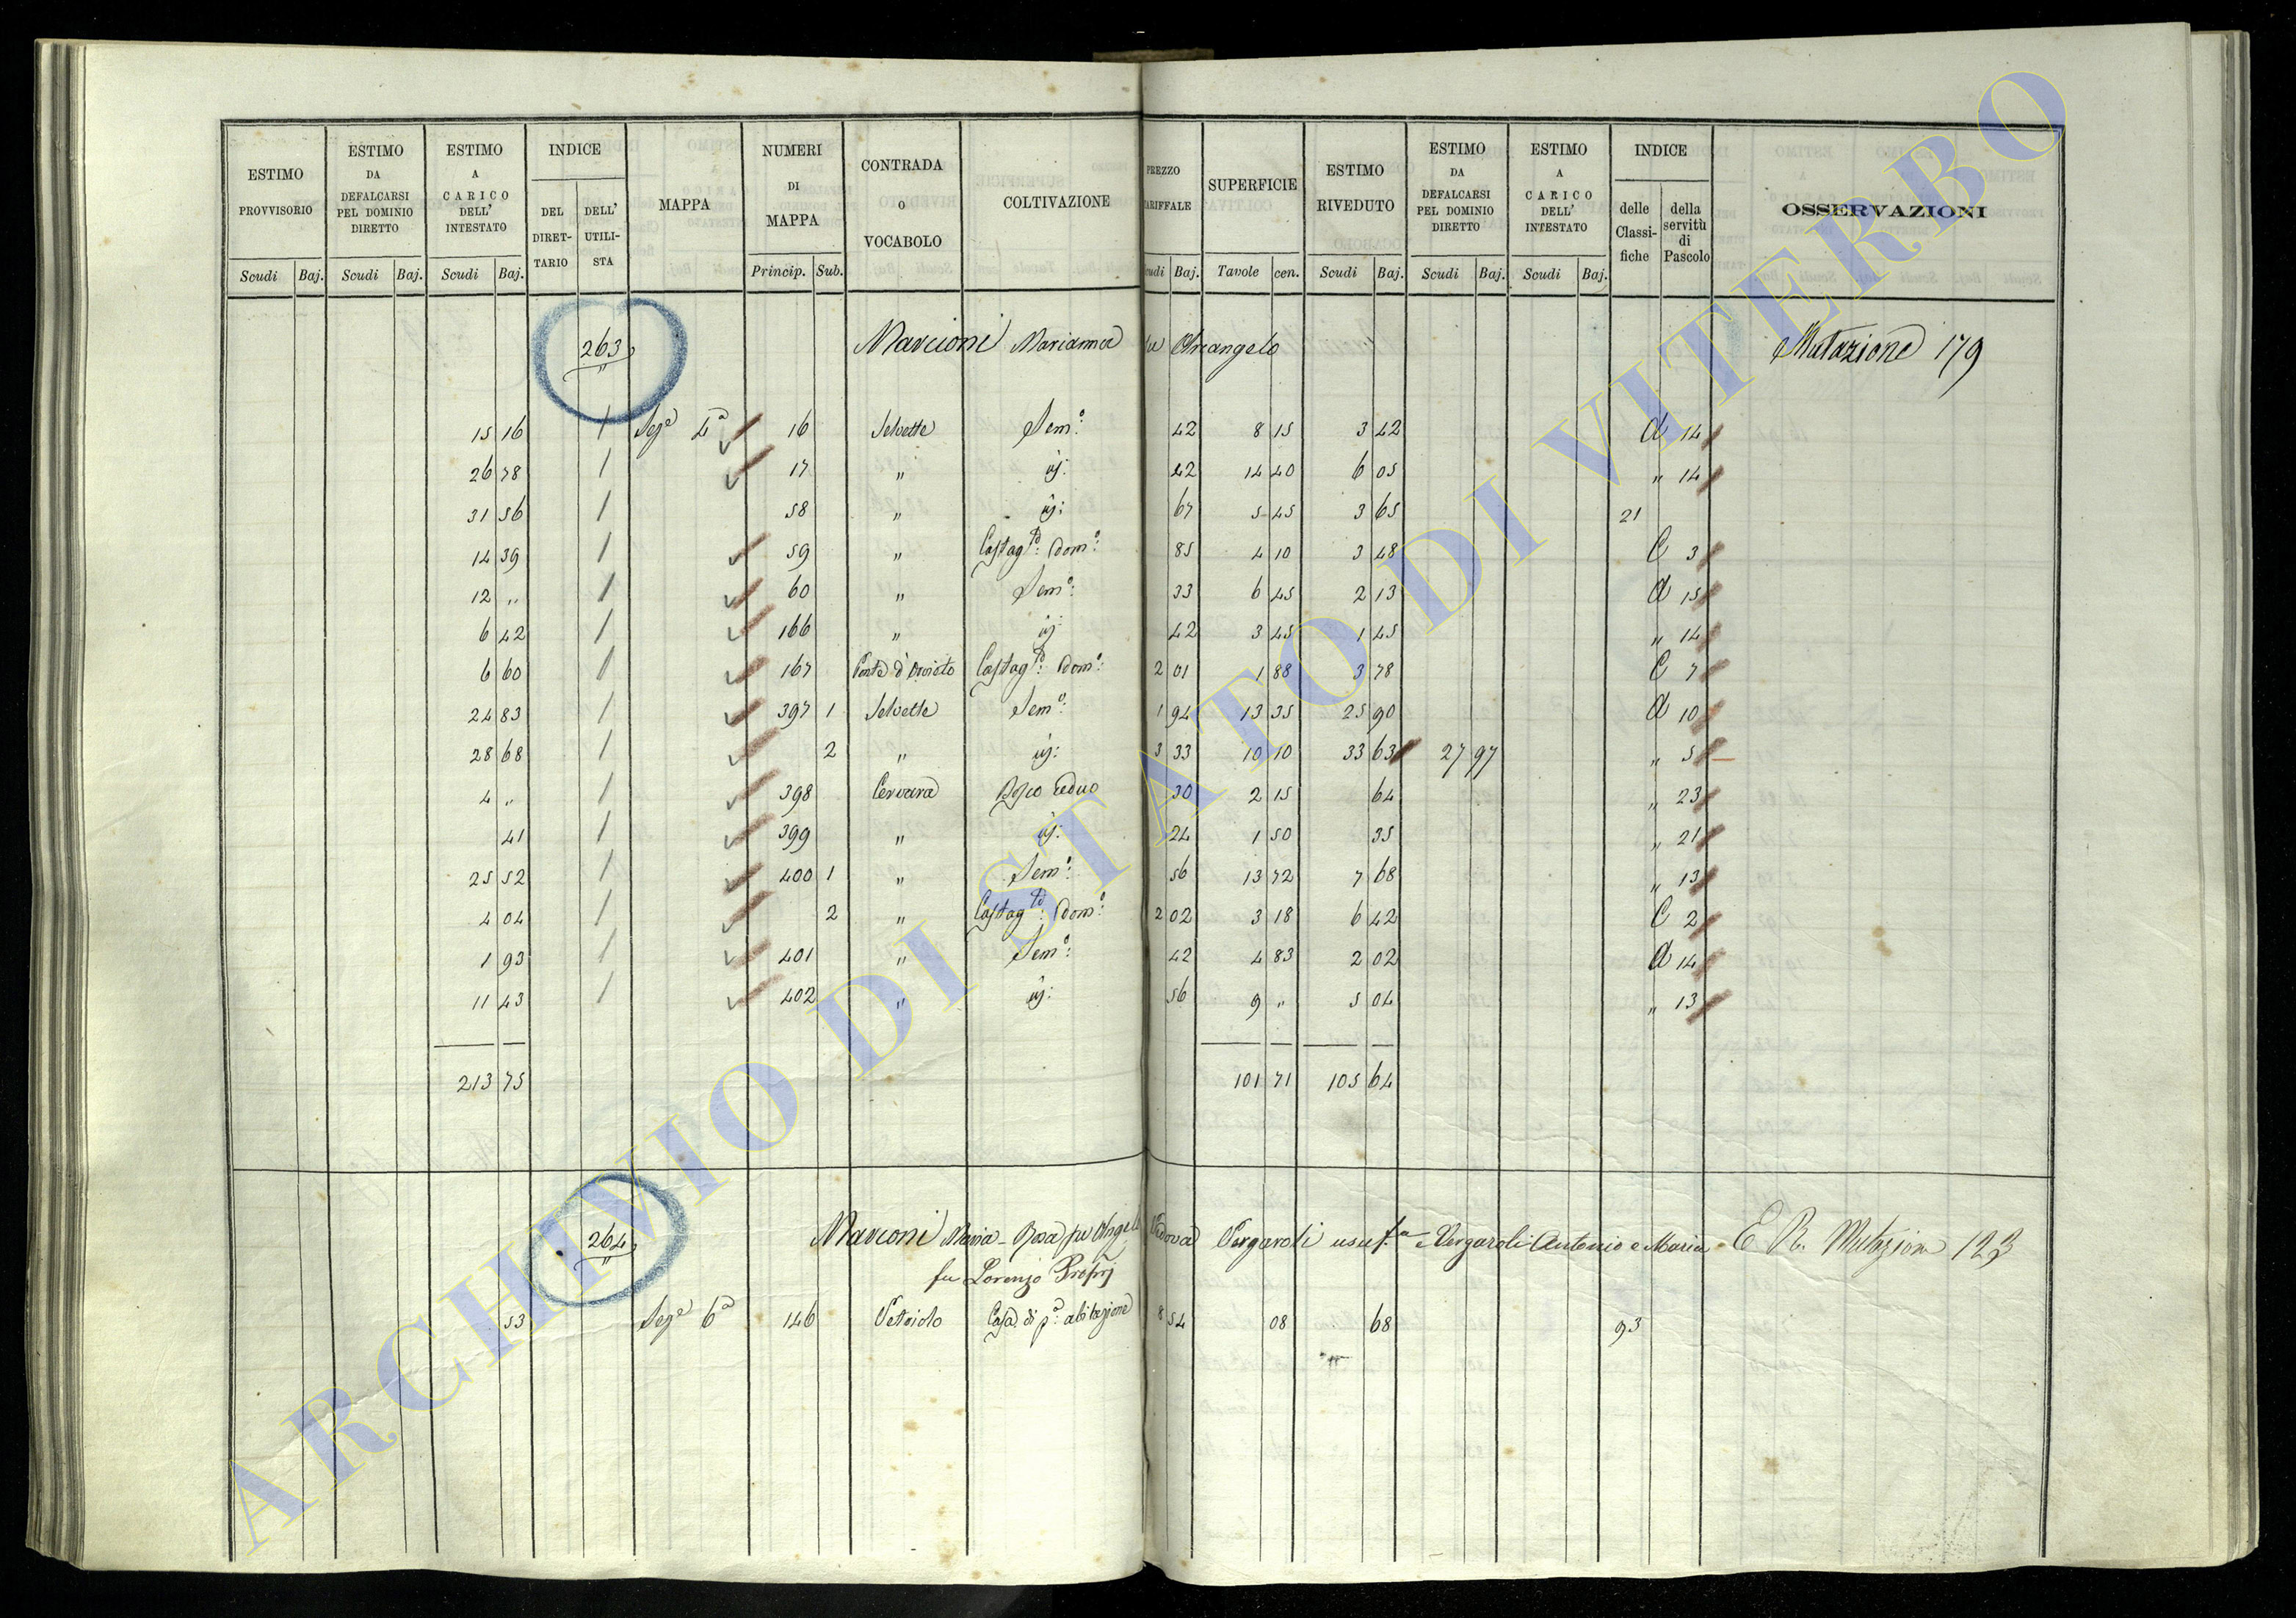 ESTIMO PROVVISORIO Scudi Baj. ESTIMO DA DEFALCARSI PEL DOMINIO DIRETTO Scudi Baj. ESTIMO A CARICO DELL' INTESTATO Scudi Baj. INDICE DEL DIRET-TARIO DELL' UTILI-STA MAPPA NUMERI DI MAPPA Princip. Sub. CONTRADA O VOCABOLO COLTIVAZIONE PREZZO TARIFFALE Scudi Baj. SUPERFICIE Tavole cen. ESTIMO RIVEDUTO Scudi Baj. ESTIMO DA DEFALCARSI PEL DOMINIO DIRETTO Scudi Baj. ESTIMO A CARICO DELL' INTESTATO Scudi Baj. INDICE delle Classi-fiche della servitù di Pascolo OSSERVAZIONI
263 Marcioni Marianna fu Arcangelo Mutazione 179
15 16 1 Sez.e 4a 16 Selvette Sem.o 42 8 15 3 42 A 14
26 78 1 17 " id: 42 14 40 6 05 " 14
31 56 1 58 " id: 67 5 45 3 65 21
14 39 1 59 " Castag.to: Dom.o: 85 4 10 3 48 C 3
12 " 1 60 " Sem.o: 33 6 45 2 13 A 15
6 42 1 166 " id: 42 3 45 1 45 " 14
6 60 1 167 Ponte d'Orvieto Castag.to: Dom.o: 2 01 1 88 3 78 C 7
24 83 1 397 1 Selvette Sem.o: 1 94 13 35 25 90 A 10
28 68 1 2 " id: 3 33 10 10 33 63 27 97 " 5
4 " 1 398 Cervara Bosco Ceduo 30 2 15 64 " 23
41 1 399 " id: 24 1 50 35 " 21
25 52 1 400 1 " Sem.o: 56 13 72 7 68 " 13
4 04 1 2 " Castag.to: Dom.o: 2 02 3 18 6 42 C 2
1 93 1 401 " Sem.o: 42 4 83 2 02 A 14
11 43 1 402 " id: 56 9 " 5 04 " 13
213 75 101 71 105 64
264 Marconi Maria-Rosa fu Angelo Vedova Vergaroli usuf.a e Vergaroli Antonio e Maria E R. Mutazion 123
fu Lorenzo Proprj
53 Sez.e 6a 146 Pettirolo Casa di p.a abitazione 8 54 08 68 93
ARCHIVIO DI STATO DI VITERBO